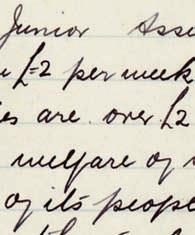 Junior Ass
£2 per week
es are over £2
welfare of
of its people